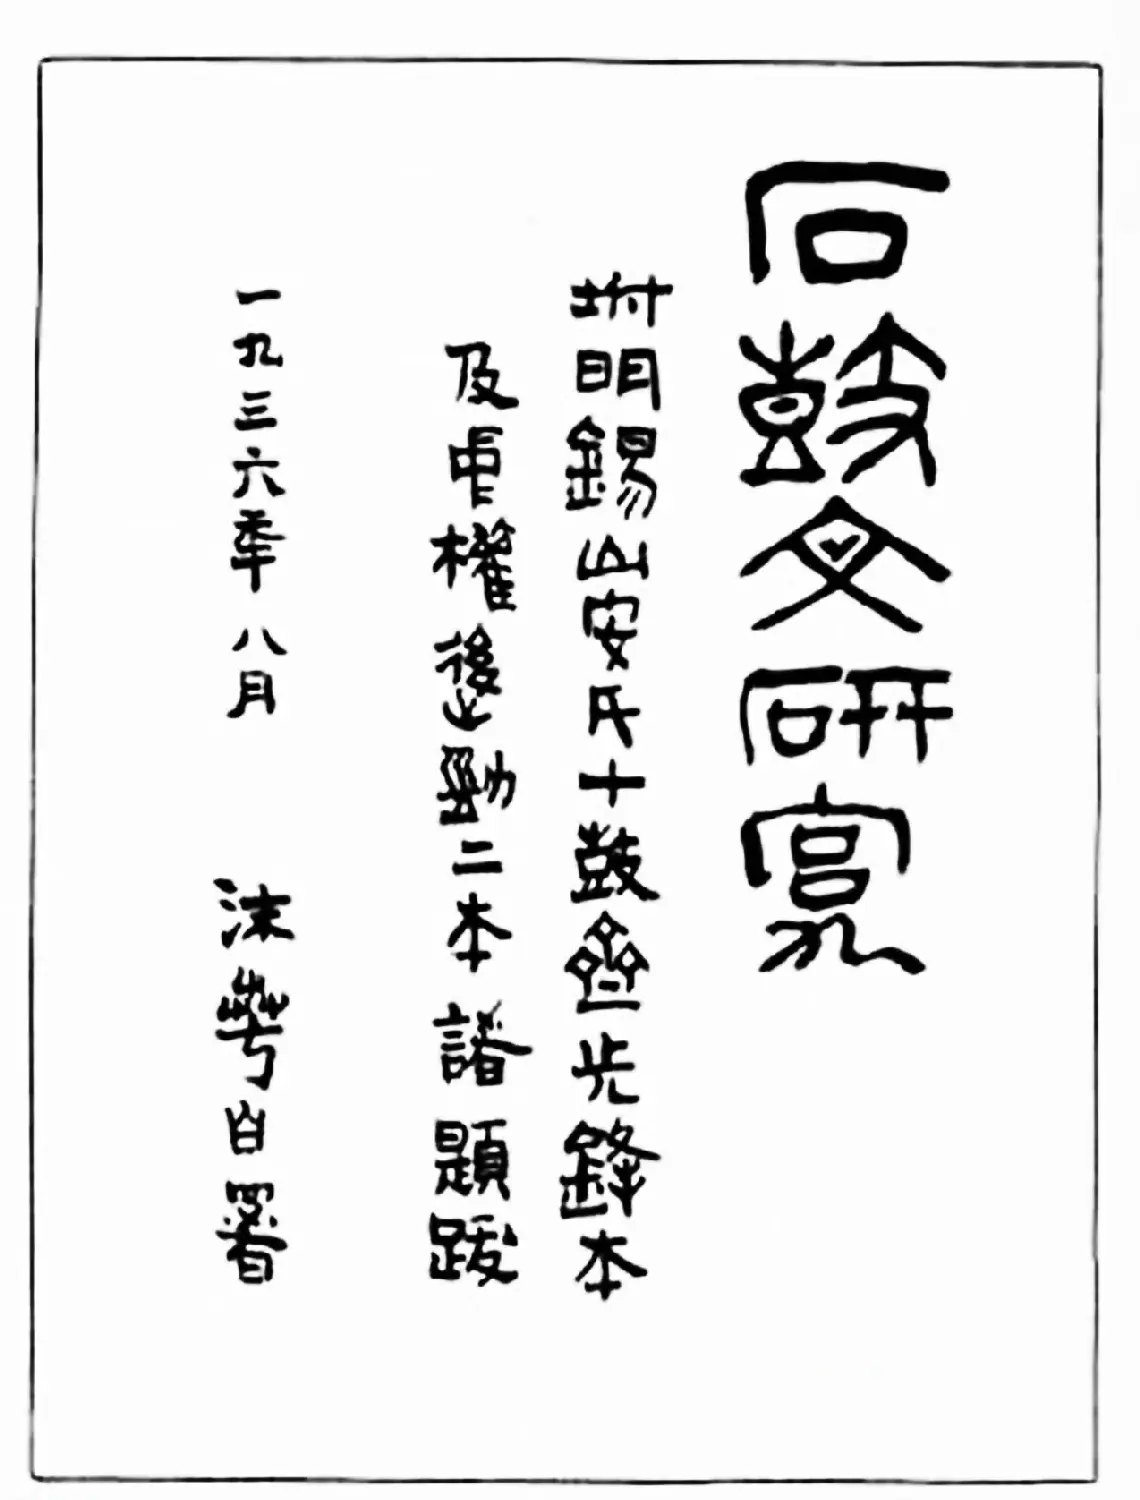 石鼓文研究
坿明錫山安氏十鼓齋先鋒本
及中權後勁二本諸題跋
一九三六年八月 沫若自署